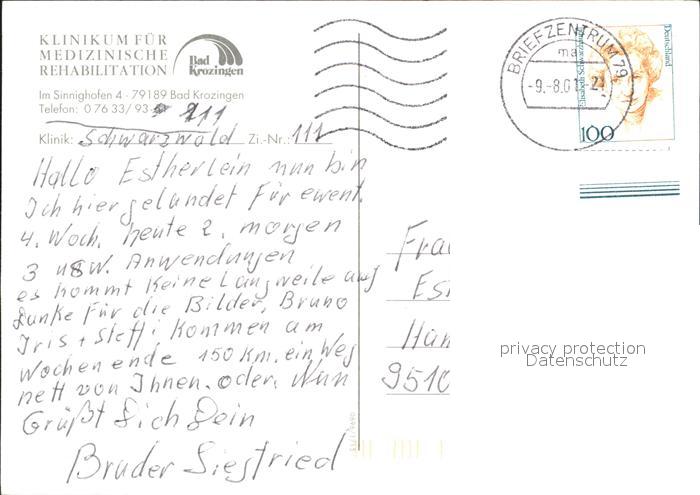 KLINIKUM FÜR
MEDIZINISCHE
REHABILITATION
Bad
Krozingen
Im Sinnighofen 4 · 79189 Bad Krozingen
Telefon: 0 76 33/ 93- 211
Klinik: Schwarzwald Zi.-Nr.: 111
Hallo Estherlein nun bin
Ich hier gelandet Für event.
4. Woch. heute 2. morgen
3 usw. Anwendungen
es kommt Keine Langweile auf
Danke Für die Bilder, Bruno
Iris + Steffi kommen am
Wochenende 150 Km. ein Weg
nett von Ihnen. oder. Nun
Grüßt Dich Dein
Bruder Siegfried
BRIEFZENTRUM 79
ma
-9.-8.01-21
Elisabeth Schwarzhaupt
Deutschland
100
Frau
Es
Han
9510
privacy protection
Datenschutz